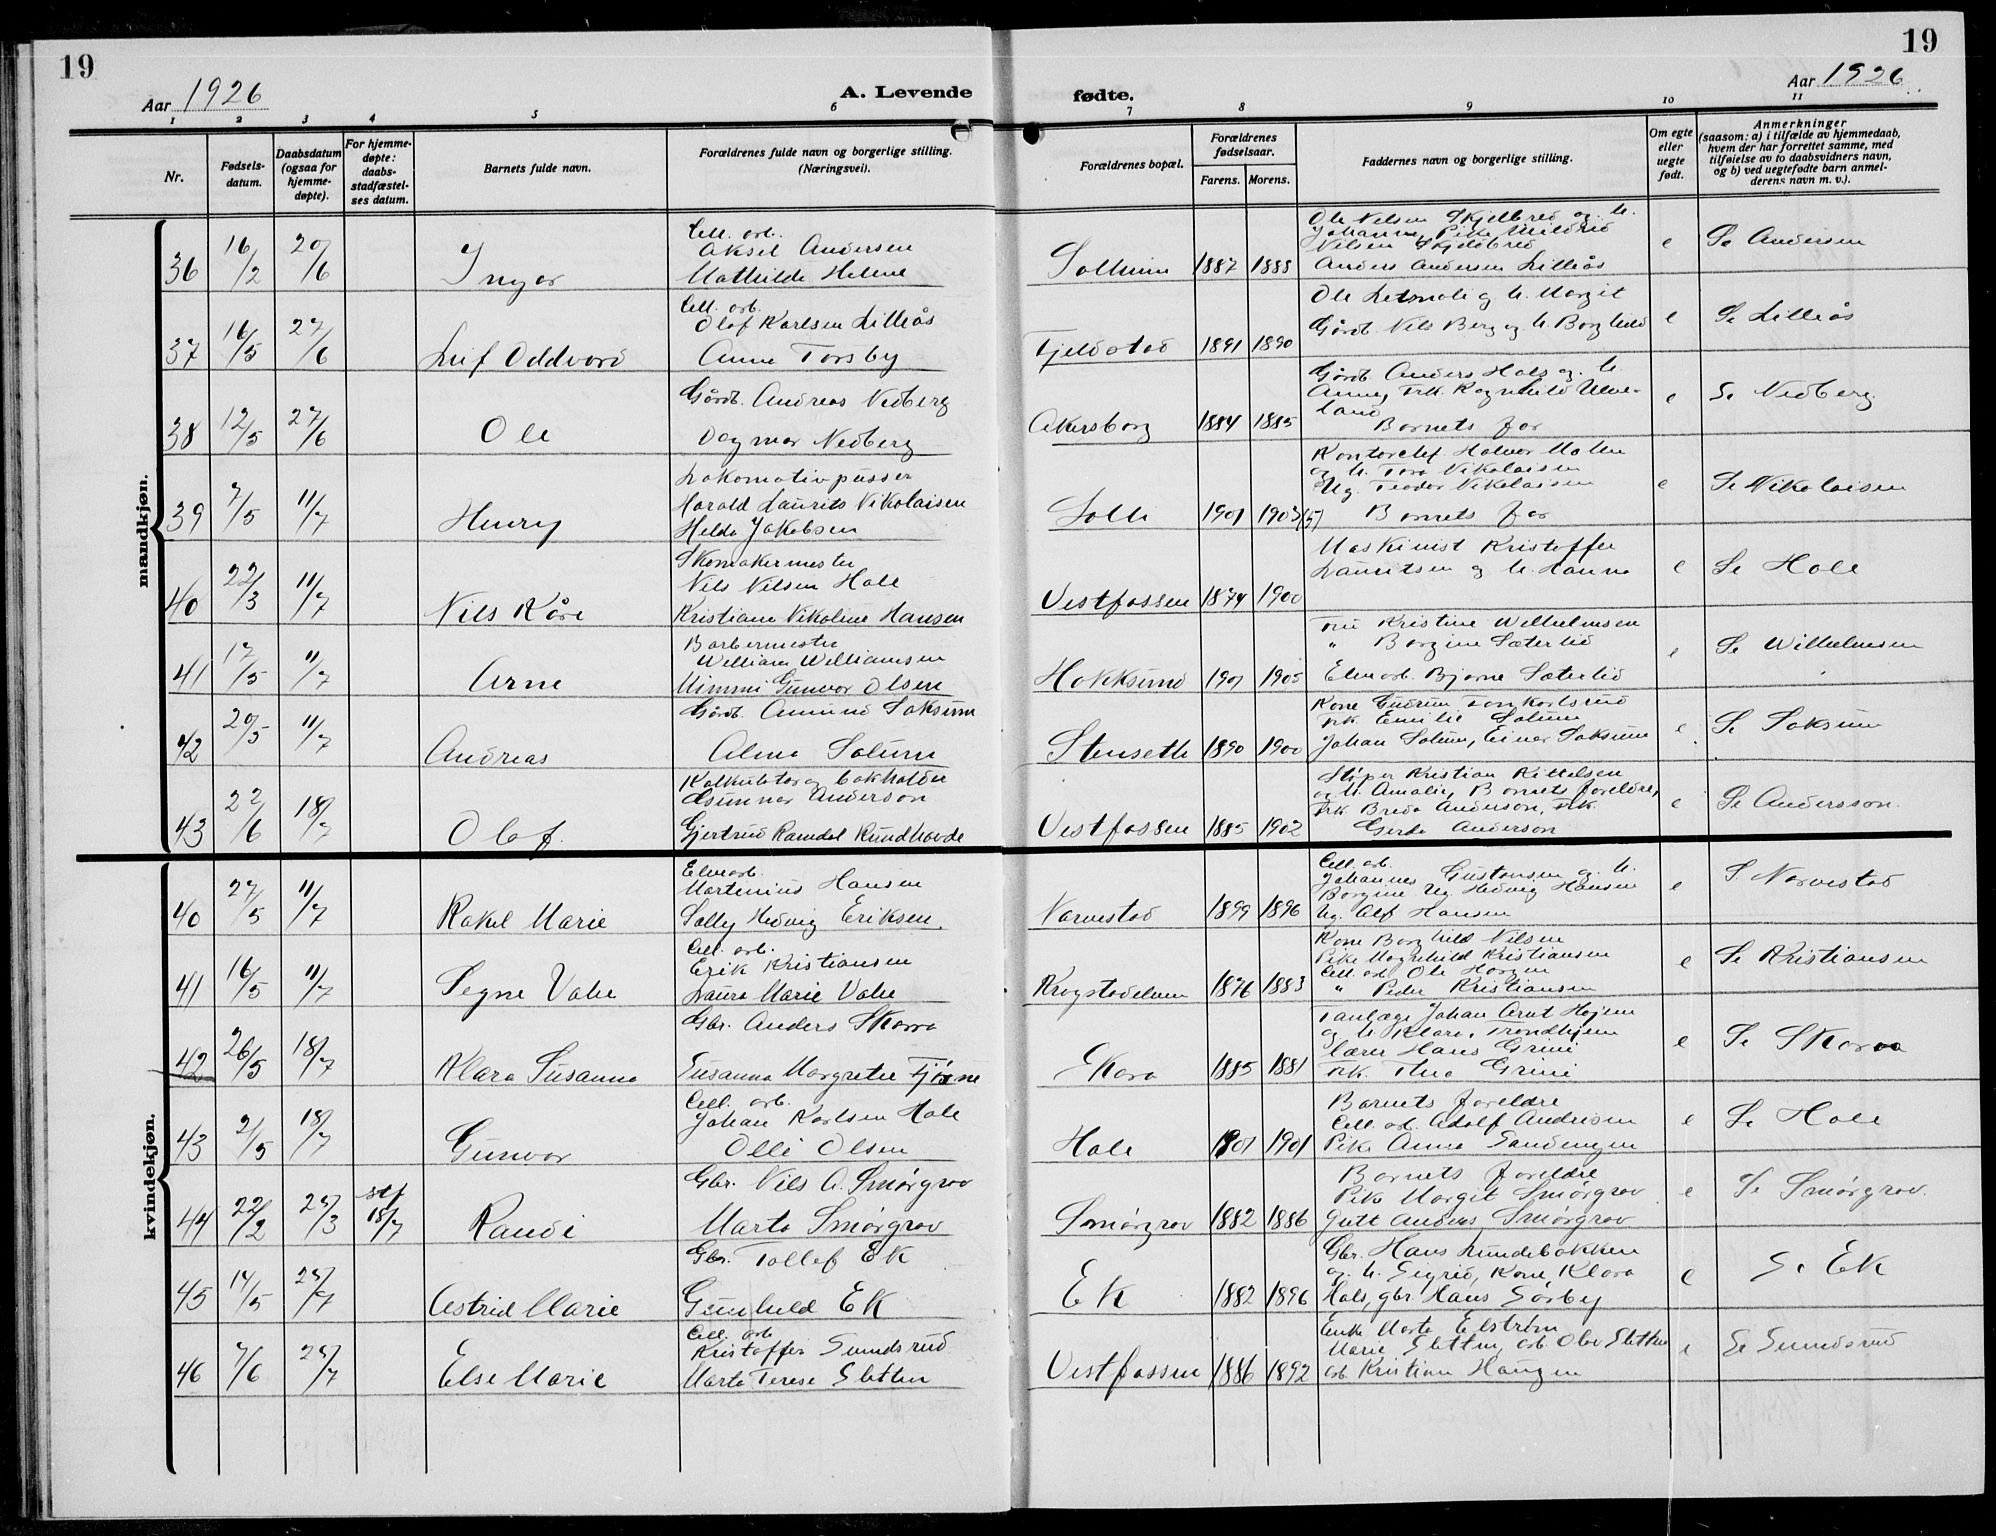 19
19
Aar 1926
A. Levende fødte.
Aar 1926
1 2 3 4 5 6 7 8 9 10 11
Nr.
Fødsels-
datum.
Daabsdatum
(ogsaa for
hjemme-
døpte).
For hjemme-
døpte:
daabs-
stadfæstel-
ses datum.
Barnets fulde navn.
Forældrenes fulde navn og borgerlige stilling.
(Næringsvei).
Forældrenes bopæl.
Forældrenes
fødselsaar.
Farens. Morens.
Faddernes navn og borgerlige stilling.
Om egte
eller
uegte
født.
Anmerkninger
(saasom: a) i tilfælde av hjemmedaab,
hvem der har forrettet samme, med
tilføielse av to daabsvidners navn,
og b) ved uegtefødte barn anmel-
derens navn m. v.).
mandkjøn.
36 16/2 20/6 Ingar
Cell. arb.
Aksel Andersen
Mathilde Helene
Solheim 1887 1888
Ole Nilsen Skjelbred og h.
Johanne, Pike Mildrid
Nilsen Skjelbred
Anders Andersen Lilleås
e Se Andersen
37 16/5 27/6 Leif Oddvard
Cell. arb.
Olaf Karlsen Lilleås
Anna Torsby
Fjeldstad 1891 1890
Ole Letmoli og h. Margit
Gårdb. Nils Berg og h Borghild
e Se Lilleås
38 12/5 27/6 Ole
Gårdb. Andreas Nedberg
Dagmar Nedberg
Akersborg 1884 1885
Gårdb. Anders Hals og h.
Anne, Frk. Ragnhild Ulve-
land
Barnets far
e Se Nedberg
39 7/5 11/7 Henry
Lokomotivpusser
Harald Laurits Nikolaisen
Helda Jakobsen
Solli 1901 1903(5)
Kontorchef Halvor Molen
og h. Tora Nikolaisen
Ug. Teodor Nikolaisen
Barnets far
e Se Nikolaisen
40 22/3 11/7 Nils Kåre
Skomakermester
Nils Nilsen Hole
Kristiane Nikoline Hansen
Vestfossen 1874 1900
Maskinist Kristoffer
Lauritsen og h. Hanna
e Se Hole
41 17/5 11/7 Arne
Barbermester
William Williamsen
Mimmi Gunvor Olsen
Hokksund 1901 1905
Fru Kristine Wilhelmsen
" Borgine Sæterlid
Elevarb. Bjarne Sæterlid
e Se Wilhelmsen
42 20/5 11/7 Andreas
Gårdb. Amund Saksum
Alma Solum
Stensetle 1890 1900
Kone Gudrun Tomkarlsrud
Frk. Emilie Solum
Johan Solum, Einar Saksum
e. Se Saksum
43 22/6 18/7 Olaf.
Kalkulator og bokholder
Gunnar Anderson
Gjertrud Ramdal Rundhovde
Vestfossen 1885 1902
Sliper Kristian Kittelsen
og h. Amalie, Barnets foreldre,
Frk. Breda Anderson, Frk.
Gerda Anderson
e Se Andersson.
kvindekjøn.
40 27/5 11/7 Rakel Marie
Elevarb.
Martinius Hansen
Solly Hedvig Eriksen.
Narvestad 1899 1896
Cell. arb.
Johannes Gustansen og h.
Borgine Ug. Hedvig Hansen
Ug. Alf Hansen
e S. Narvestad
41 16/5 11/7 Segne Valie
Cell. arb.
Erik Kristiansen
Laura Marie Valie
Krogstadelven 1876 1883
Kone Borghild Nilsen
Pike Magnhild Kristiansen
Cell. arb Ole Horgen
" Peder Kristiansen
e Se Kristiansen
42 26/5 18/7 Klara Susanna
Gbr. Anders Skara
Susanna Margrethe Fjøsne
Skara 1885 1881
Tanlæge Johan Arnt Højem
og h Klara, Trondhjem
lærer Hans Grini
Frk. Thea Grini
e Se Skara
43 21/5 18/7 Gunvor
Cell. arb.
Johan Karlsen Hole
Olli Olsen
Hole 1901 1901
Barnets foreldre
Cell. arb. Adolf Andresen
Pike Anna Sandengen
e Se Hole
44 22/2 25/3 stf 18/7 Randi
Gbr. Nils A. Smørgrav
Marta Smørgrav
Smørgrav 1882 1886
Barnets foreldre
Pike Margit Smørgrav
Gutt Anders Smørgrav
e Se Smørgrav.
45 14/5 25/7 Astrid Marie
Gbr. Tollef Ek
Gunhild Ek
Ek 1882 1896
Gbr. Hans Lundebakken
og h. Sigrid, Kone Klara
Hals, gbr. Hans Sørby
e Se Ek
46 7/6 25/7 Else Marie
Cell. arb
Kristoffer Sundsrud
Marta Terese Sletten
Vestfossen 1886 1892
Enke Marta Elstrøm
Marie Sletten, arb Olav Sletten
arb Kristian Haugen
e Se Sundsrud